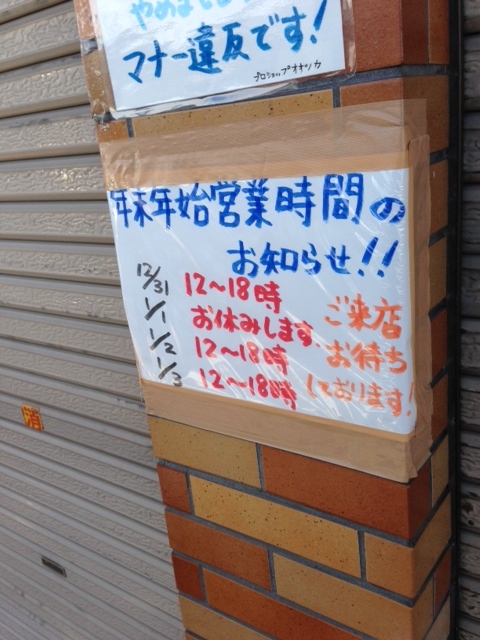 マナー違反です!
プロショップオオツカ
年末年始営業時間の
お知らせ!!
12/31 12〜18時
1/1 お休みします.
1/2 12〜18時
1/3 12〜18時
ご来店
お待ち
しております!
消